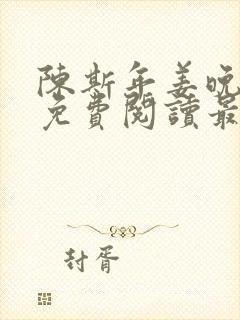 陳斯年姜晚
免費閱讀最
封胥